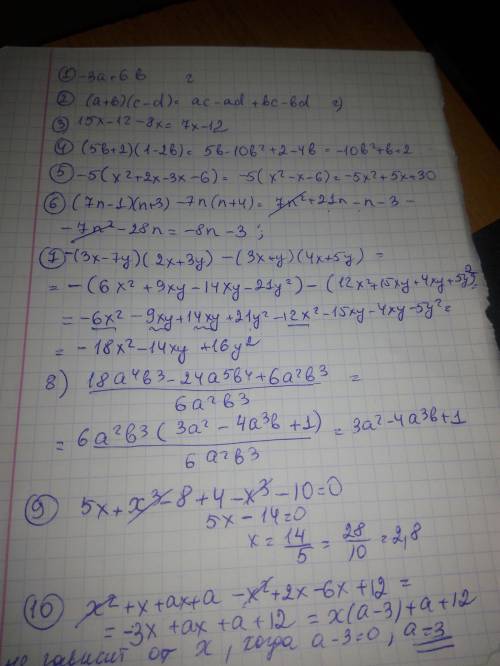 ① -3a+6b г
② (a+b)(c-d)= ac-ad+bc-bd г)
③ 15x-12-8x= 7x-12
④ (5b+2)(1-2b)= 5b-10b²+2-4b= -10b²+b+2
⑤ -5(x²+2x-3x-6)= -5(x²-x-6)=-5x²+5x+30
⑥ (7n-1)(n+3)-7n(n+4)= 7n²+21n-n-3-
-7n²-28n= -8n-3;
⑦ -(3x-7y)(2x+3y)-(3x+y)(4x+5y)=
=-(6x²+9xy-14xy-21y²)-(12x²+15xy+4xy+5y²)=
=-6x²-9xy+14xy+21y²-12x²-15xy-4xy-5y²=
=-18x²-14xy+16y²
8) 18a⁴b³-24a⁵b⁴+6a²b³ =
6a²b³
= 6a²b³(3a²-4a³b+1) = 3a²-4a³b+1
6a²b³
⑨ 5x+x³-8+4-x³-10=0
5x-14=0
x= 14/5 = 28/10 =2,8
⑩ x²+x+ax+a-x²+2x-6x+12=
=-3x+ax+a+12= x(a-3)+a+12
не зависит от x, тогда a-3=0, a=3